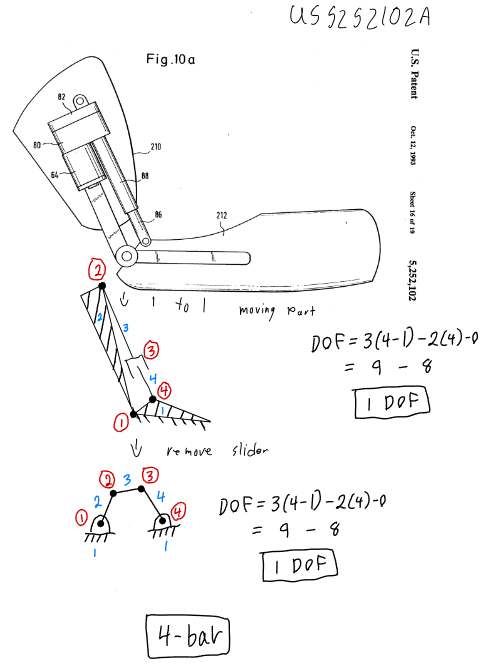 US5252102A
Fig.10a
U.S. Patent
Oct. 12, 1993
Sheet 16 of 19
5,252,102
82
80
64
210
88
86
212
2
↓ 1 to 1 moving part
2
3
3
4
4
1
1
DOF = 3(4-1)-2(4)-0
= 9 - 8
1 DOF
↓ remove slider
2
3
3
2
4
1
4
1
1
DOF = 3(4-1)-2(4)-0
= 9 - 8
1 DOF
4-bar